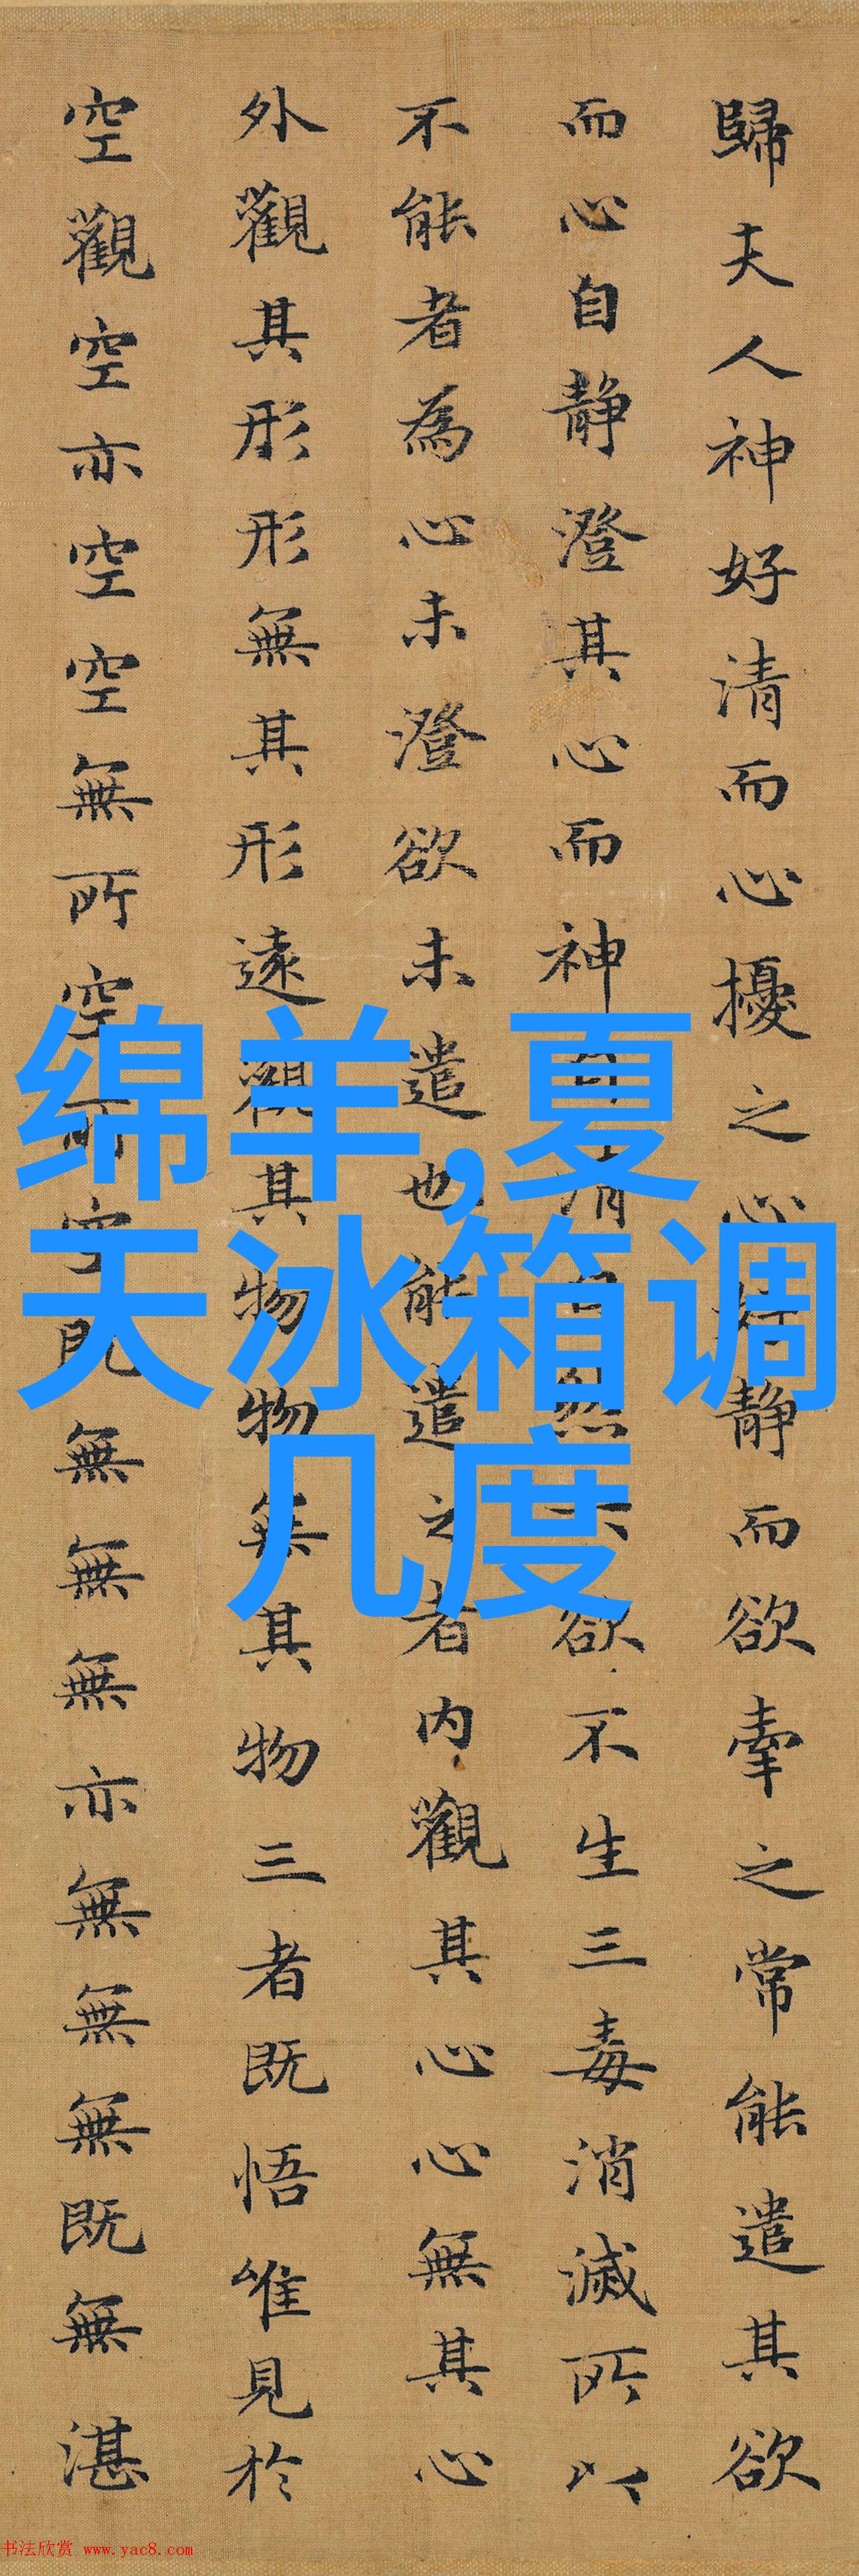 歸夫人神好清而心擾之心好静而欲牽之常能遣其欲
而心自静澄其心而神自清自然六欲不生三毒消滅所以
不能者為心未澄欲未遣也能遣之者内觀其心心無其心
外觀其形形無其形遠觀其物物無其物三者既悟唯見於
空觀空亦空空無所空所空既無無無亦無無無既無湛
绵羊,夏
天冰箱调
几度
书法欣赏 www.yac8.com